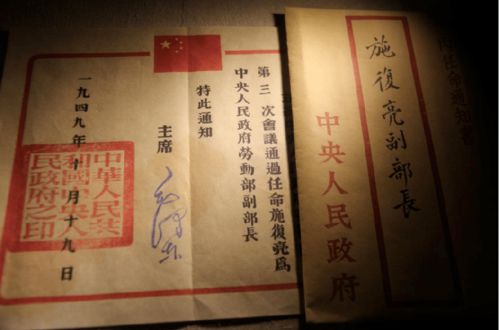 內任命通知書
施復亮副部長
中央人民政府
第三次會議通過任命施復亮爲
中央人民政府勞動部副部長
特此通知
主席
毛泽东
一九四九年十月十九日
中華人民共
和國中央人
民政府之印